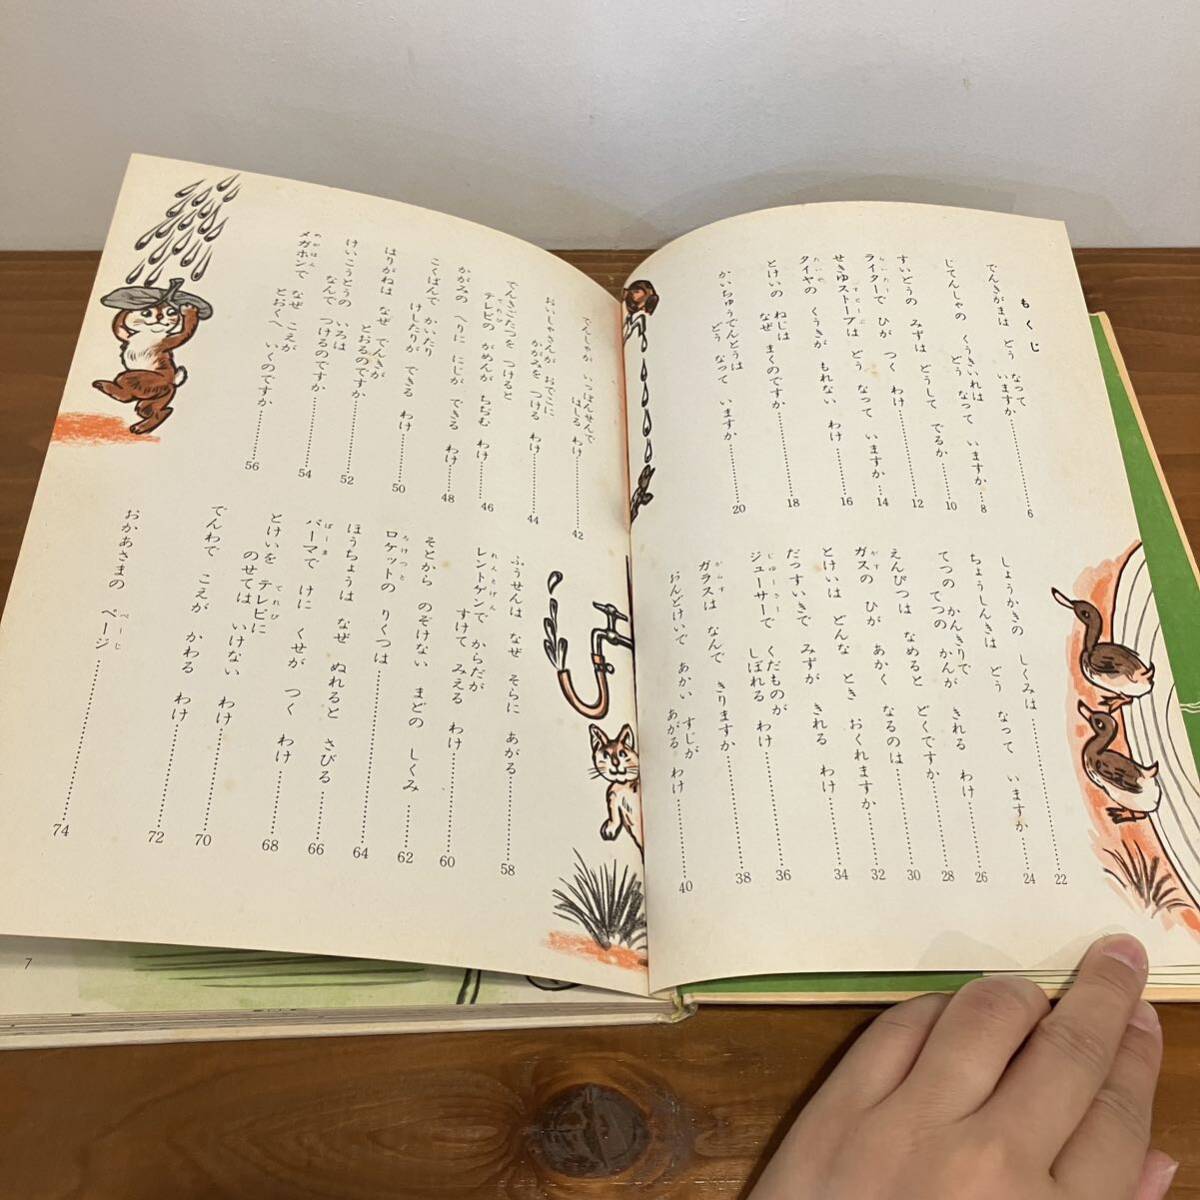 もくじ
でんきがまは どう なって
いますか……6
じてんしゃの くうきいれは
どう なって いますか…8
すいどうの みずは どうして でるか……10
ライターで ひが つく わけ……12
せきゆストーブは どう なって いますか…14
タイヤの くうきが もれない わけ……16
とけいの ねじは
なぜ まくのですか……18
かいちゅうでんとうは
どう なって いますか……20
しょうかきの しくみは……22
ちょうしんきは どう なって いますか……24
てつの かんきりで
てつの かんが きれる わけ……26
えんぴつは なめると どくですか……28
ガスの ひが あかく なるのは……30
とけいは どんな とき おくれますか……32
だっすいきで みずが きれる わけ……34
ジューサーで くだものが
しぼれる わけ……36
ガラスは なんで きりますか……38
おんどけいで あかい すじが
あがる わけ……40
でんしゃが いっぽんせんで
はしる わけ……42
おいしゃさんが おでこに
かがみを つける わけ……44
でんきごたつを つけると
テレビの がめんが ちぢむ わけ……46
かがみの へりに にじが できる わけ……48
こくばんで かいたり
けしたりが できる わけ……50
はりがねは なぜ でんきが
とおるのですか……52
けいこうとうの いろは
なんで つけるのですか……54
メガホンで なぜ こえが
とおくへ いくのですか……56
ふうせんは なぜ そらに あがる……58
レントゲンで からだが
すけて みえる わけ……60
そとから のぞけない まどの しくみ……62
ロケットの りくつは……64
ほうちょうは なぜ ぬれると さびる……66
パーマで けに くせが つく わけ……68
とけいを テレビに
のせては いけない わけ……70
でんわで こえが かわる わけ……72
おかあさまの ページ……74
7